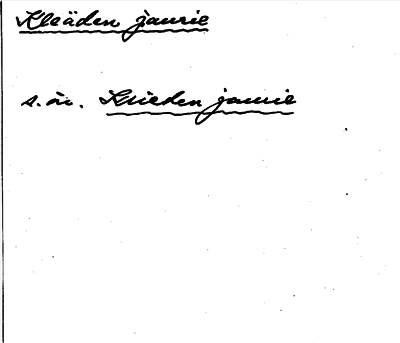 Kleäden jaurie
s.o. Krieden jaurie